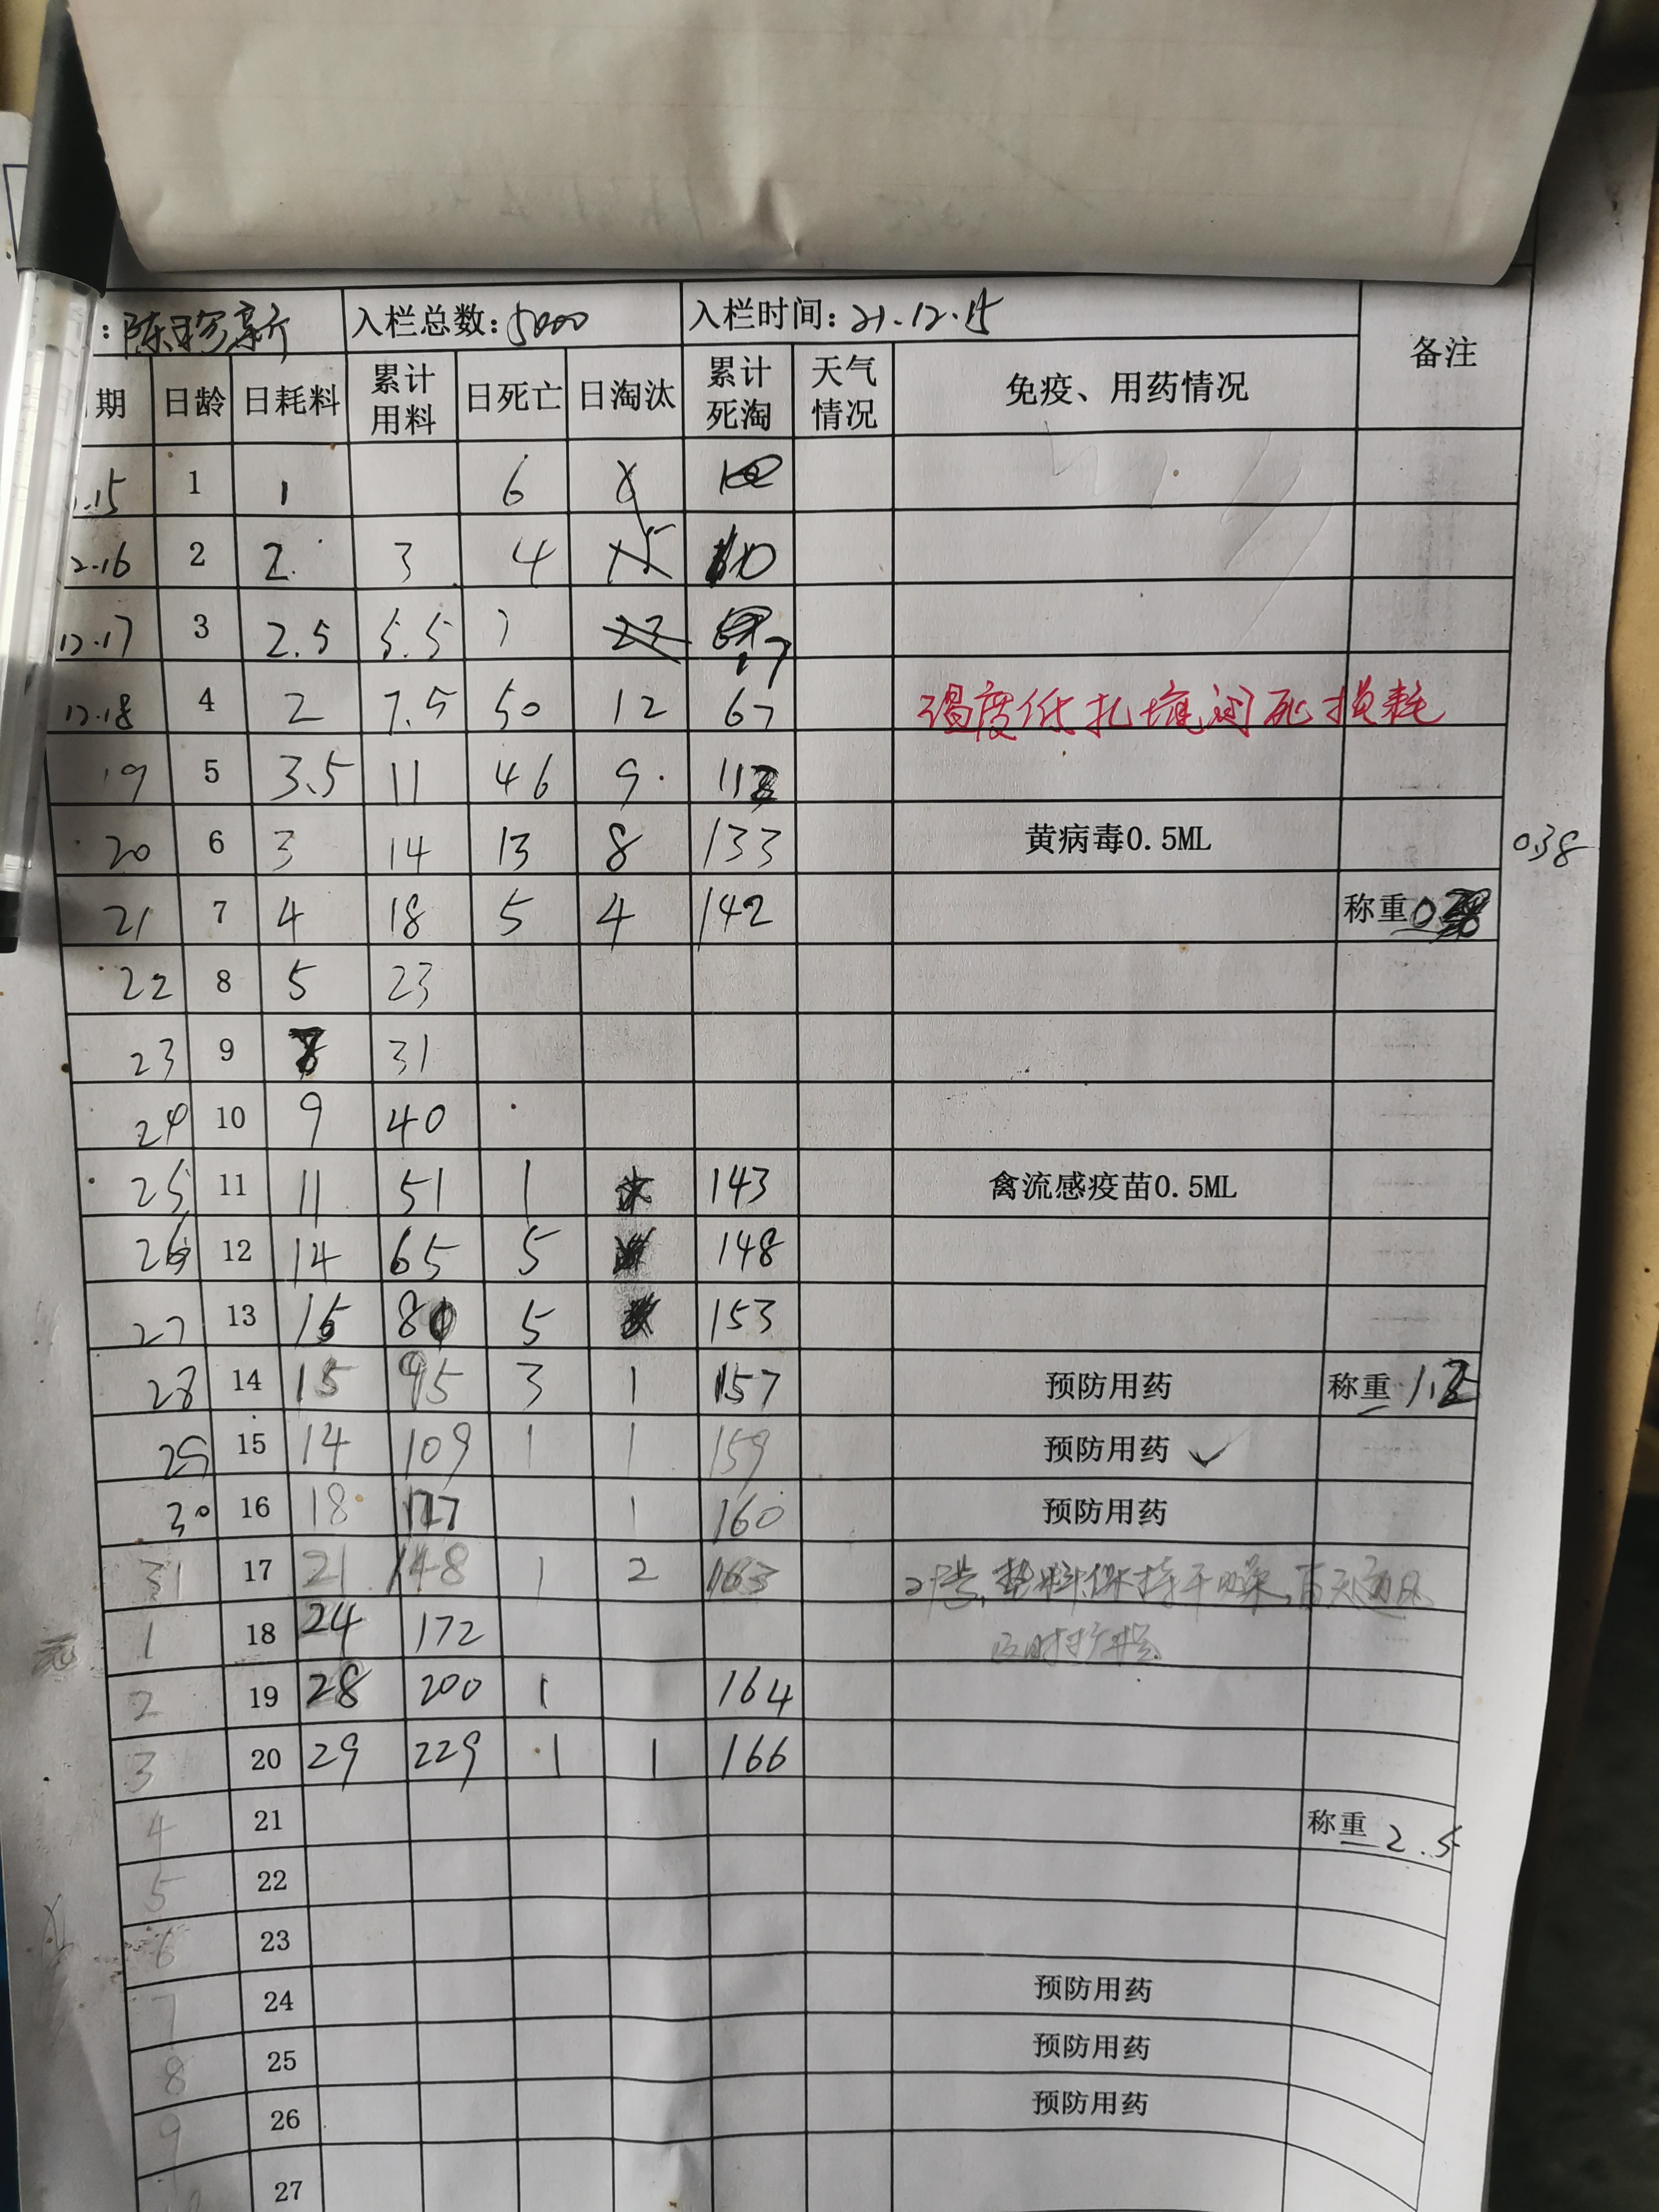 : 陈 新 入栏总数: 5000 入栏时间: 21.12.15
期 日龄 日耗料 累计用料 日死亡 日淘汰 累计死淘 天气情况 免疫、用药情况 备注
.15 1 1 6
2.16 2 2 3 4 10
12.17 3 2.5 5.5 7 17
12.18 4 2 7.5 50 12 67 温度低扎堆闷死损耗
19 5 3.5 11 46 9 112
20 6 3 14 13 8 133 黄病毒0.5ML 0.38
21 7 4 18 5 4 142 称重
22 8 5 23
23 9 8 31
24 10 9 40
25 11 11 51 1 143 禽流感疫苗0.5ML
26 12 14 65 5 148
27 13 15 80 5 153
28 14 15 95 3 1 157 预防用药 称重
29 15 14 109 1 1 159 预防用药 ✓
30 16 18 127 1 160 预防用药
31 17 21 148 1 2 163 21号,垫料保持干燥,白天通风
1 18 24 172 及时扩栏
2 19 28 200 1 164
3 20 29 229 1 1 166
4 21 称重 2.5
5 22
6 23
7 24 预防用药
8 25 预防用药
9 26 预防用药
27